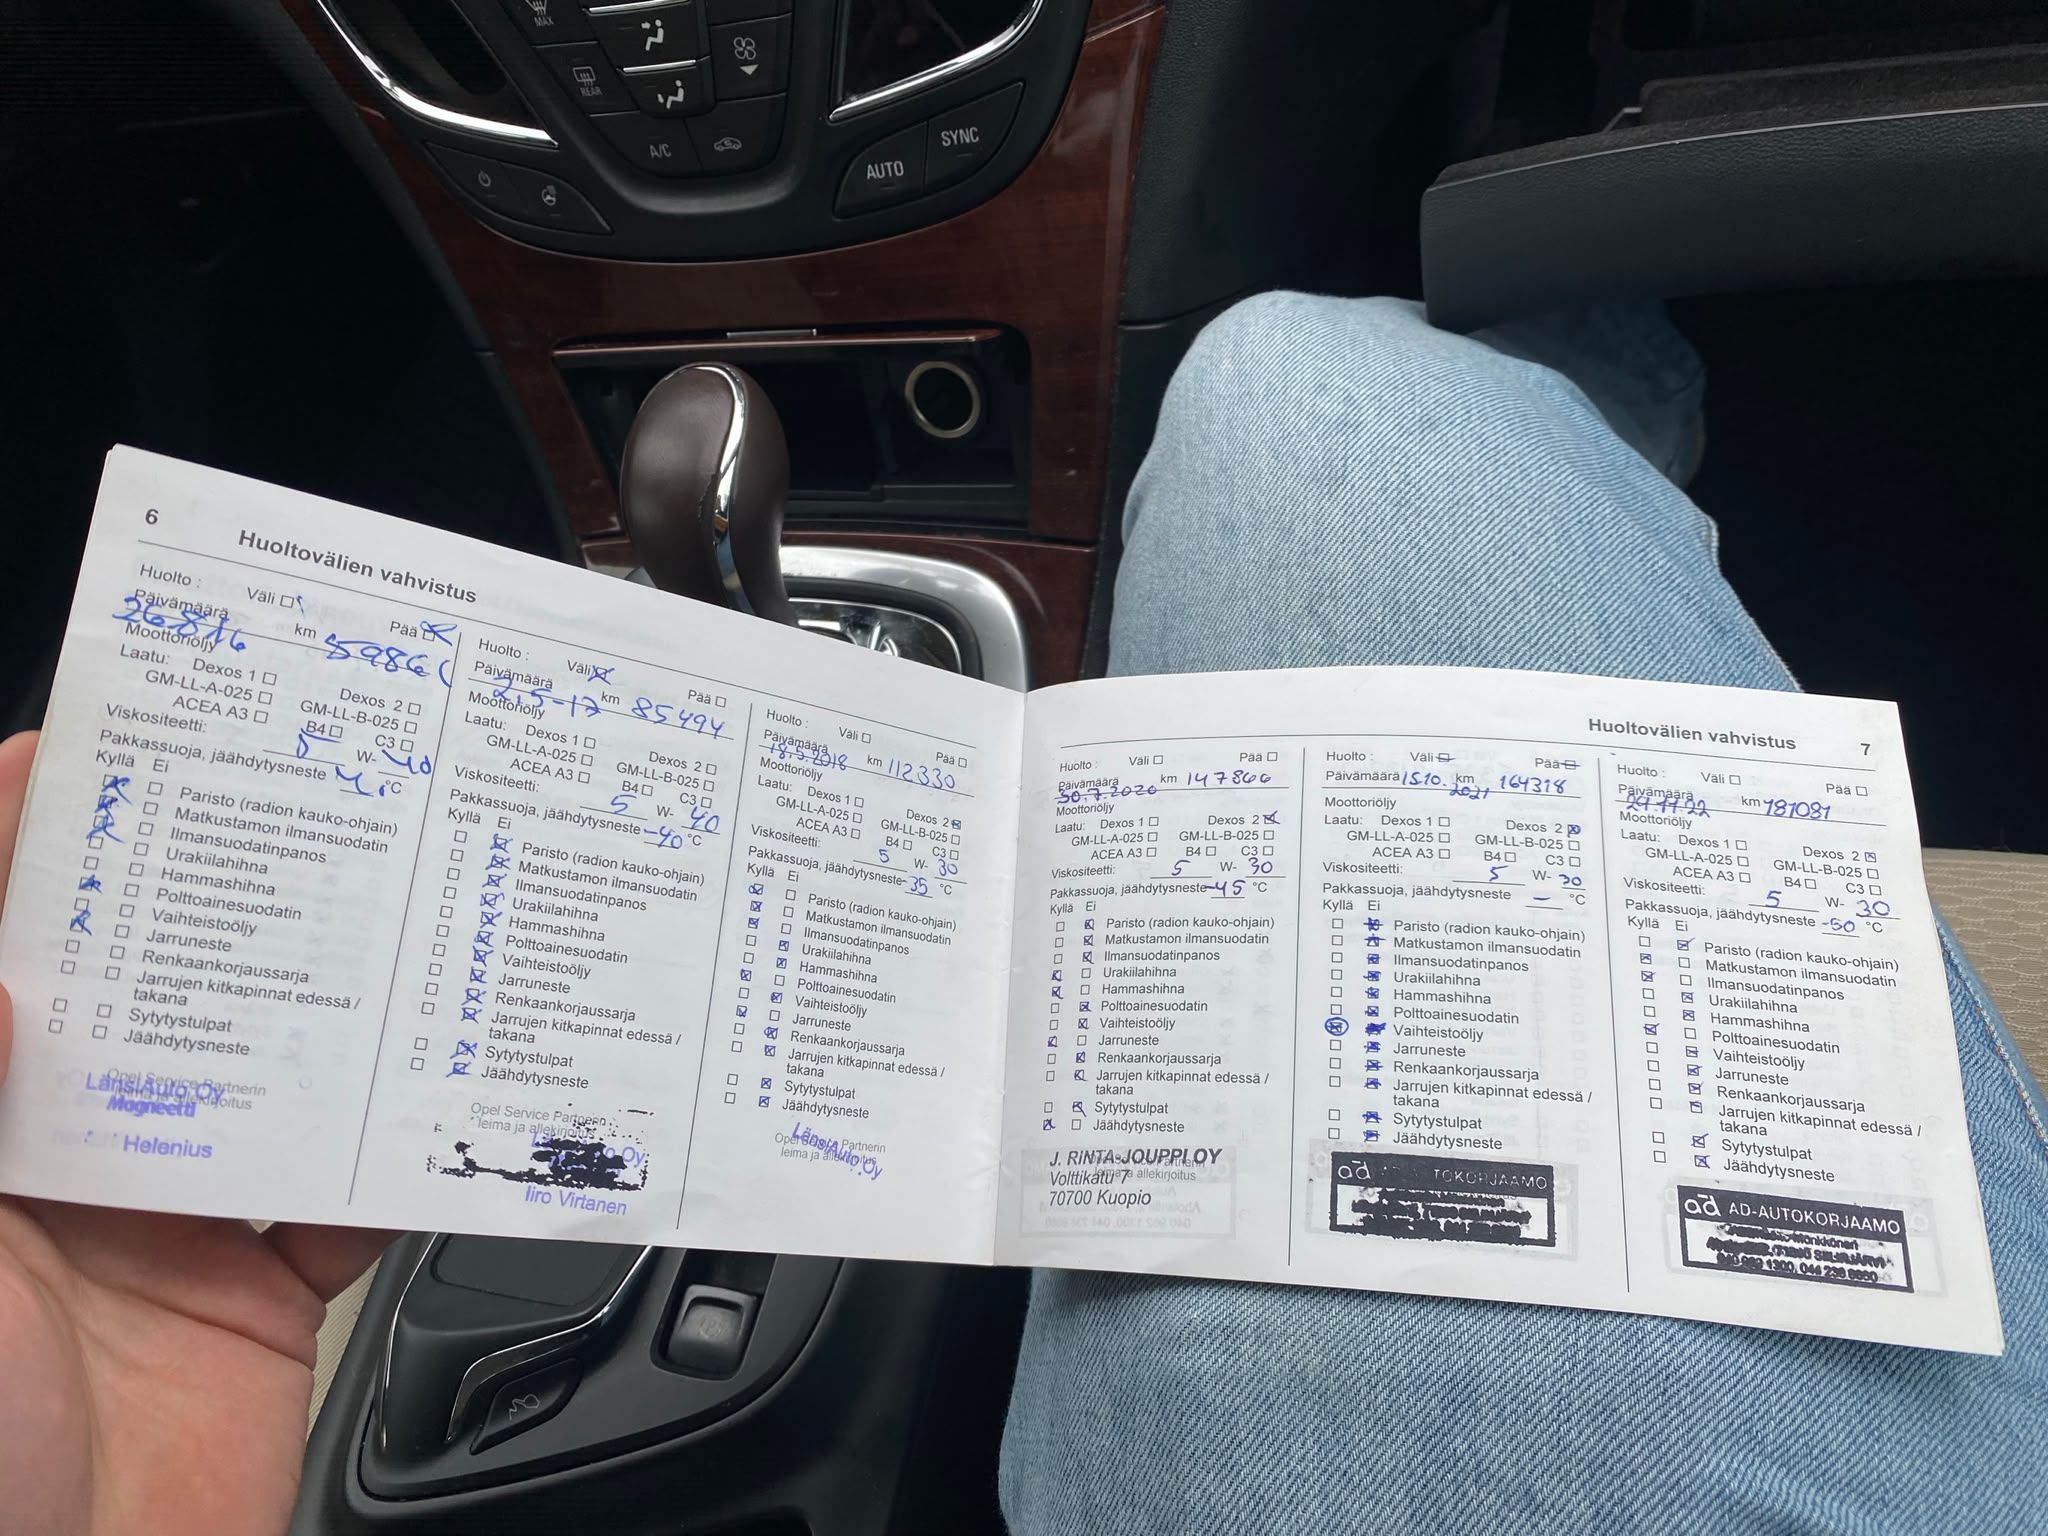 MAX
REAR
A/C
AUTO
SYNC
6
Huoltovälien vahvistus
Huolto : Väli Pää
Päivämäärä km
26.8.16 5986
Moottoriöljy
Laatu: Dexos 1 Dexos 2
GM-LL-A-025 GM-LL-B-025
ACEA A3 B4 C3
Viskositeetti: W- 40
Pakkassuoja, jäähdytysneste °C
Kyllä Ei
Paristo (radion kauko-ohjain)
Matkustamon ilmansuodatin
Ilmansuodatinpanos
Urakiilahihna
Hammashihna
Polttoainesuodatin
Vaihteistoöljy
Jarruneste
Renkaankorjaussarja
Jarrujen kitkapinnat edessä /
takana
Sytytystulpat
Jäähdytysneste
Opel Service Partnerin
leima ja allekirjoitus
LänsiAuto Oy
Magneetti
Helenius
Huolto : Väli Pää
Päivämäärä km
2.5-17 85494
Moottoriöljy
Laatu: Dexos 1 Dexos 2
GM-LL-A-025 GM-LL-B-025
ACEA A3 B4 C3
Viskositeetti: 5 W- 40
Pakkassuoja, jäähdytysneste -40 °C
Kyllä Ei
Paristo (radion kauko-ohjain)
Matkustamon ilmansuodatin
Ilmansuodatinpanos
Urakiilahihna
Hammashihna
Polttoainesuodatin
Vaihteistoöljy
Jarruneste
Renkaankorjaussarja
Jarrujen kitkapinnat edessä /
takana
Sytytystulpat
Jäähdytysneste
Opel Service Partnerin
leima ja allekirjoitus
Oy
Iiro Virtanen
Huolto : Väli Pää
Päivämäärä km 112330
18.5.2018
Moottoriöljy
Laatu: Dexos 1 Dexos 2
GM-LL-A-025 GM-LL-B-025
ACEA A3 B4 C3
Viskositeetti: 5 W- 30
Pakkassuoja, jäähdytysneste -35 °C
Kyllä Ei
Paristo (radion kauko-ohjain)
Matkustamon ilmansuodatin
Ilmansuodatinpanos
Urakiilahihna
Hammashihna
Polttoainesuodatin
Vaihteistoöljy
Jarruneste
Renkaankorjaussarja
Jarrujen kitkapinnat edessä /
takana
Sytytystulpat
Jäähdytysneste
Opel Service Partnerin
leima ja allekirjoitus
LänsiAuto Oy
Huoltovälien vahvistus 7
Huolto : Väli Pää
Päivämäärä km 147866
30.7.2020
Moottoriöljy
Laatu: Dexos 1 Dexos 2
GM-LL-A-025 GM-LL-B-025
ACEA A3 B4 C3
Viskositeetti: 5 W- 30
Pakkassuoja, jäähdytysneste -45 °C
Kyllä Ei
Paristo (radion kauko-ohjain)
Matkustamon ilmansuodatin
Ilmansuodatinpanos
Urakiilahihna
Hammashihna
Polttoainesuodatin
Vaihteistoöljy
Jarruneste
Renkaankorjaussarja
Jarrujen kitkapinnat edessä /
takana
Sytytystulpat
Jäähdytysneste
J. RINTA-JOUPPI OY
leima ja allekirjoitus
Volttikatu 7
70700 Kuopio
Huolto : Väli Pää
Päivämäärä 15.10. 2021 km 164318
Moottoriöljy
Laatu: Dexos 1 Dexos 2
GM-LL-A-025 GM-LL-B-025
ACEA A3 B4 C3
Viskositeetti: 5 W- 30
Pakkassuoja, jäähdytysneste - °C
Kyllä Ei
Paristo (radion kauko-ohjain)
Matkustamon ilmansuodatin
Ilmansuodatinpanos
Urakiilahihna
Hammashihna
Polttoainesuodatin
Vaihteistoöljy
Jarruneste
Renkaankorjaussarja
Jarrujen kitkapinnat edessä /
takana
Sytytystulpat
Jäähdytysneste
ad TOKORJAAMO
Huolto : Väli Pää
Päivämäärä km 181081
29.11.22
Moottoriöljy
Laatu: Dexos 1 Dexos 2
GM-LL-A-025 GM-LL-B-025
ACEA A3 B4 C3
Viskositeetti: 5 W- 30
Pakkassuoja, jäähdytysneste -50 °C
Kyllä Ei
Paristo (radion kauko-ohjain)
Matkustamon ilmansuodatin
Ilmansuodatinpanos
Urakiilahihna
Hammashihna
Polttoainesuodatin
Vaihteistoöljy
Jarruneste
Renkaankorjaussarja
Jarrujen kitkapinnat edessä /
takana
Sytytystulpat
Jäähdytysneste
ad AD-AUTOKORJAAMO
Mönkkönen